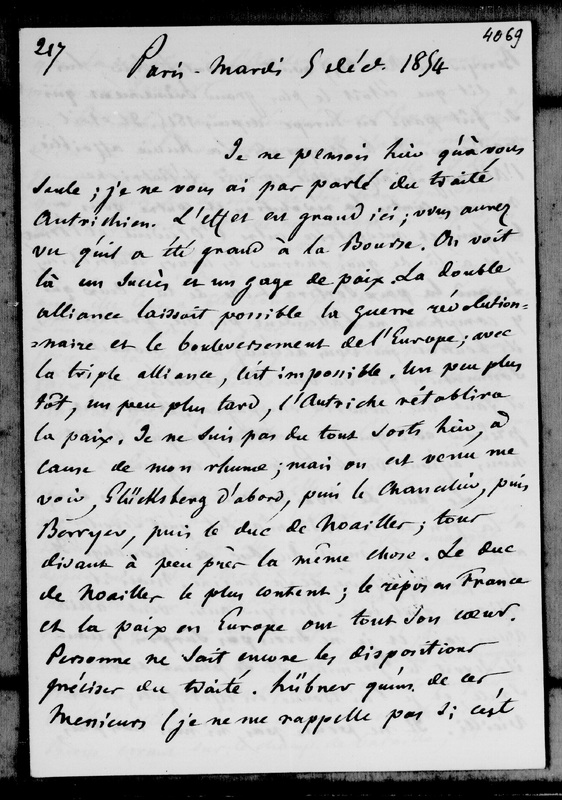 217
4069
Paris - Mardi 5 déc. 1854
Je ne pensois hier qu'à vous
seule ; je ne vous ai pas parlé du traité
Autrichien. L'effet est grand ici ; vous aurez
vu qu'il a été grand à la Bourse. On voit
là un succès et un gage de paix. La double
alliance laissait possible la guerre révolution=
=naire et le bouleversement de l'Europe ; avec
la triple alliance, c'est impossible. Un peu plus
tôt, un peu plus tard, l'Autriche rétablira
la paix. Je ne suis pas du tout sorti hier, à
cause de mon rhume ; mais on est venu me
voir, Glücksberg d'abord, puis le Chancelier, puis
Berryer, puis le duc de Noailles ; tous
disant à peu près la même chose. Le duc
de Noailles le plus content ; le repos en France
et la paix en Europe ont tout son cœur.
Personne ne sait encore les dispositions
précises du traité. Hübner qu'un de ces
Messieurs (je ne me rappelle pas si c'est